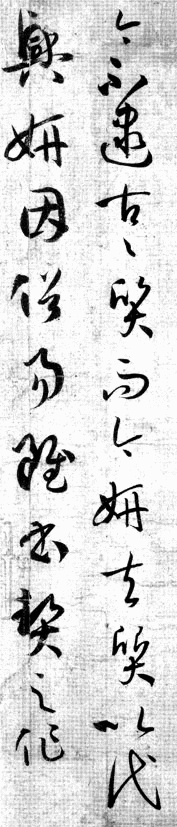 今不逮古〻質而今妍夫質以代
興妍因俗易雖書契之作